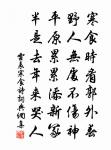 寒食時看郭外春
野人無處不傷神
平原累累添新塚
半是去年來哭人
雲表寒食詩